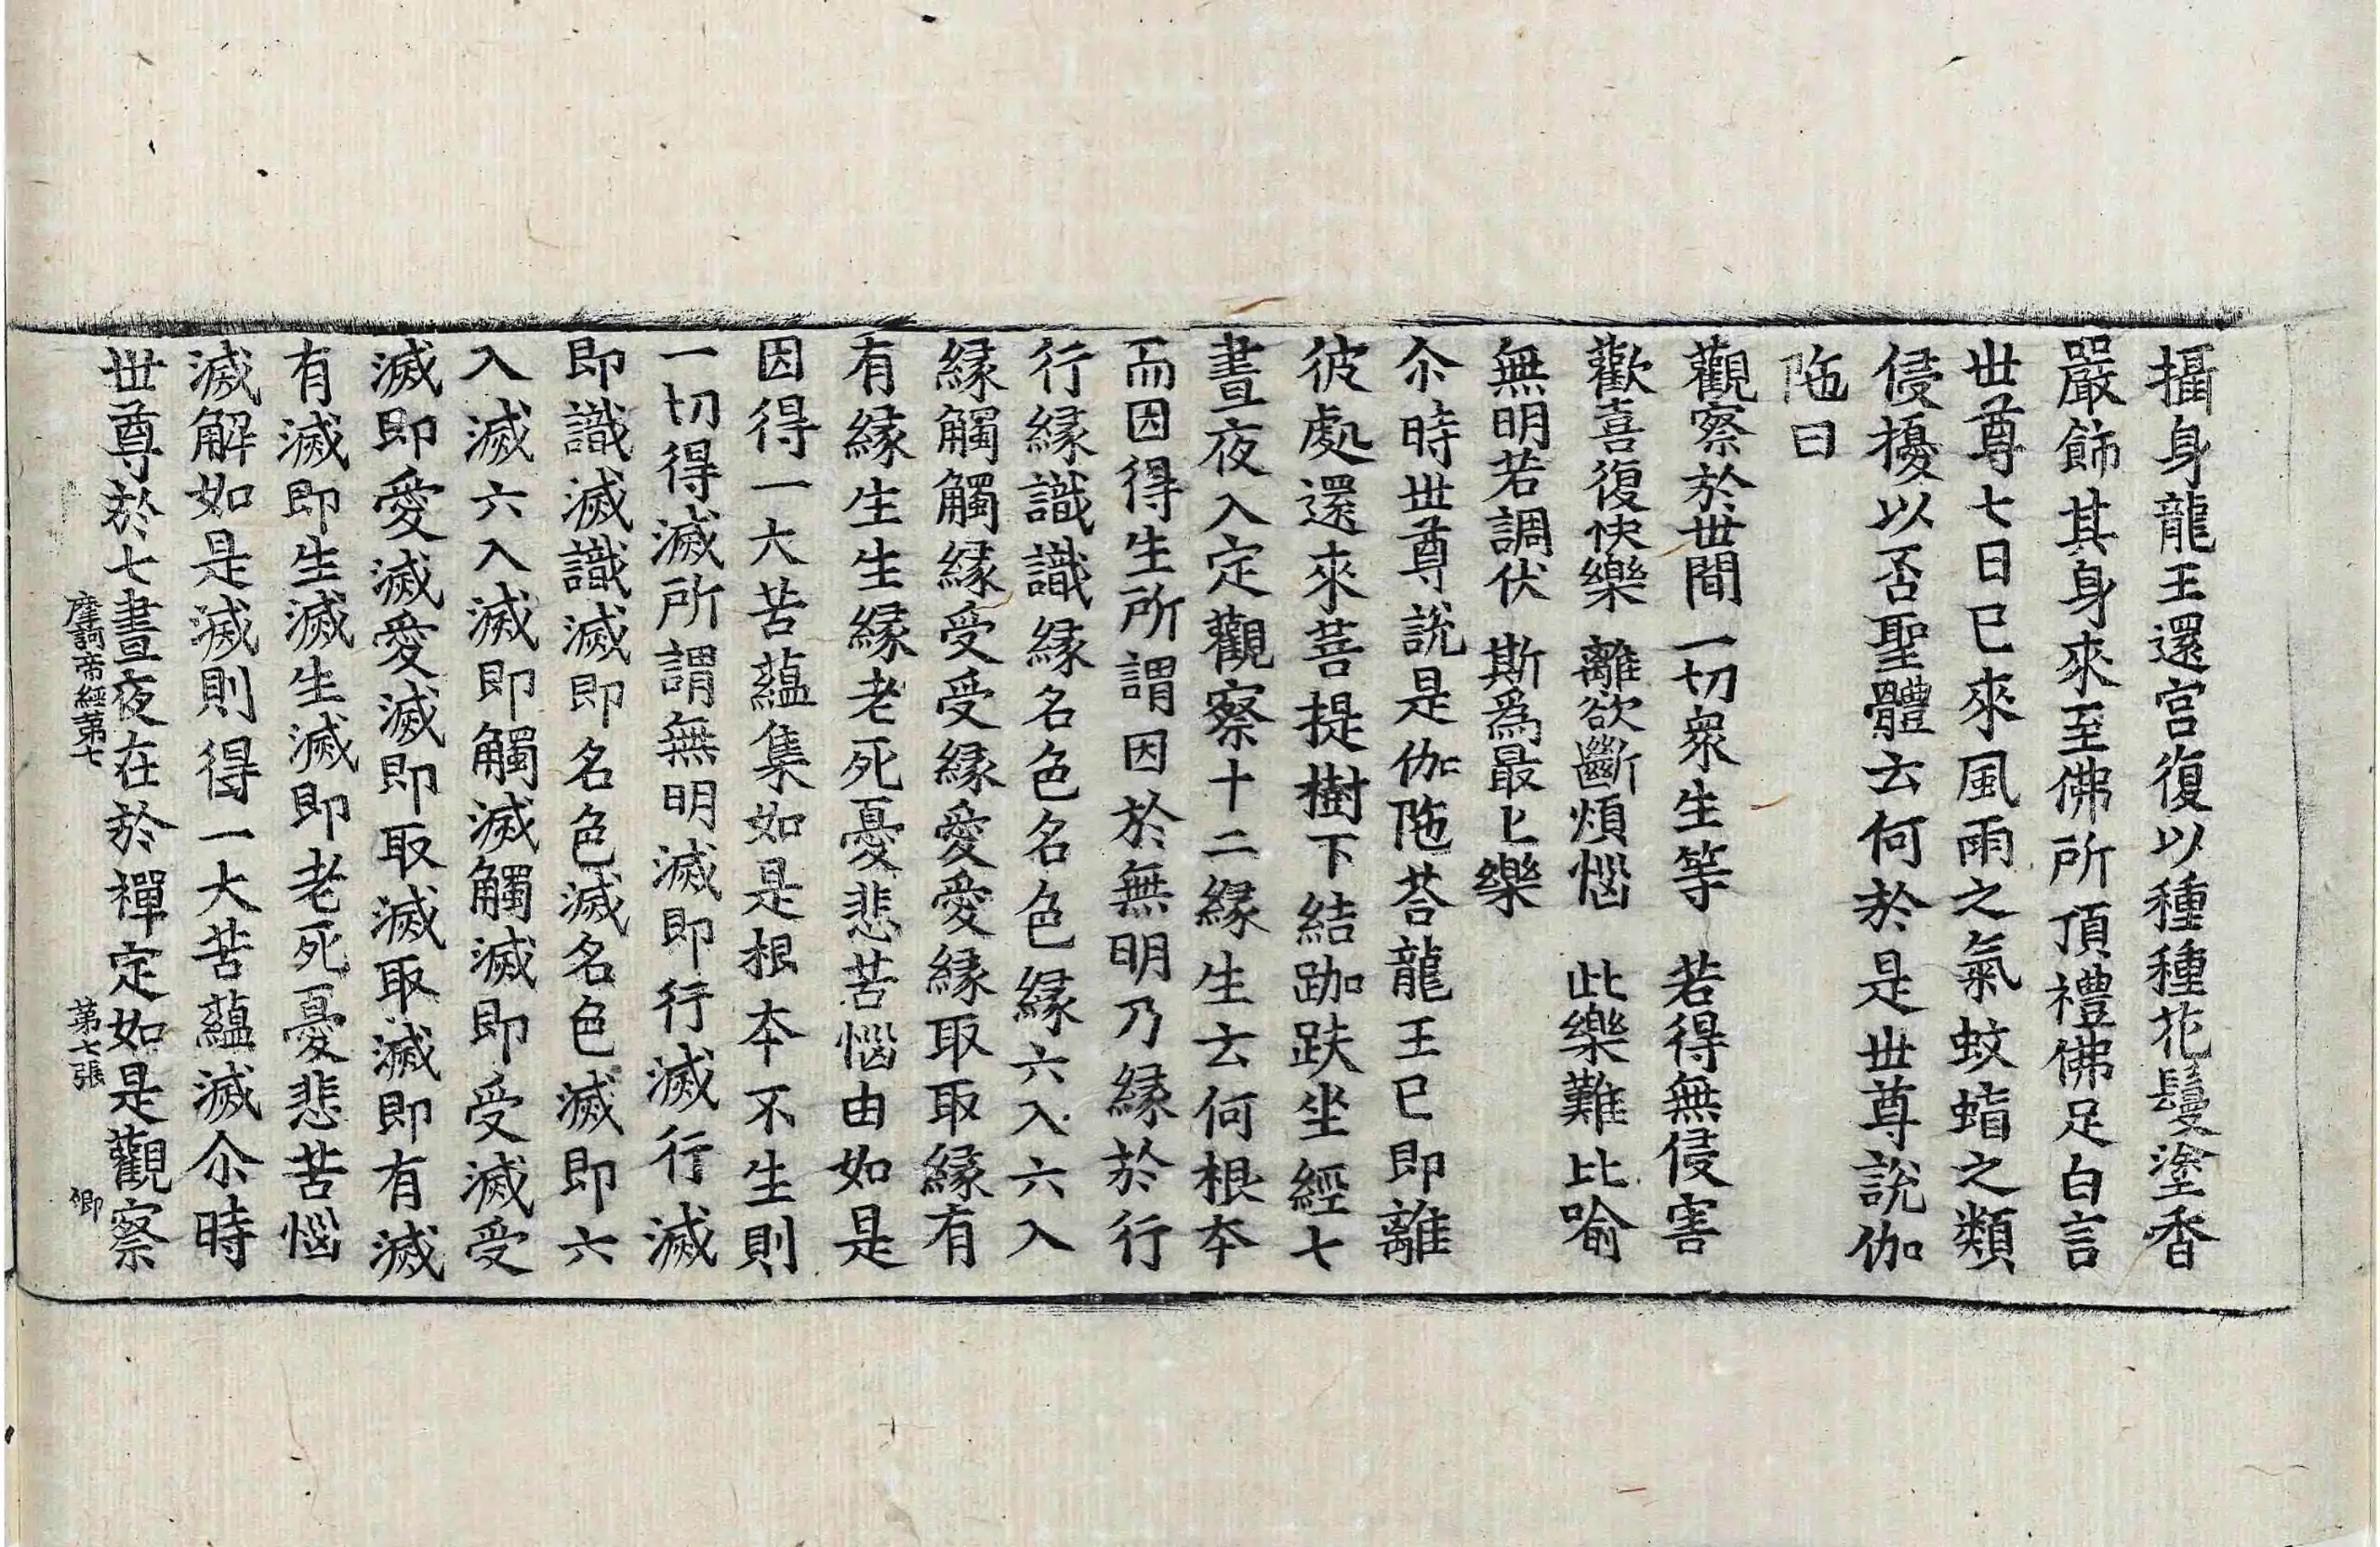 攝身龍王還宮復以種種花鬘塗香
嚴飾其身來至佛所頂禮佛足白言
世尊七日已來風雨之氣蚊蝱之類
侵擾以否聖體云何於是世尊說伽
陁曰
觀察於世間　一切衆生等　若得無侵害
歡喜復快樂　離欲斷煩惱　此樂難比喻
無明若調伏　斯爲最上樂
尒時世尊說是伽陁荅龍王已即離
彼處還來菩提樹下結跏趺坐經七
晝夜入定觀察十二緣生云何根本
而因得生所謂因於無明乃緣於行
行緣識識緣名色名色緣六入六入
緣觸觸緣受受緣愛愛緣取取緣有
有緣生生緣老死憂悲苦惱由如是
因得一大苦蘊集如是根本不生則
一切得滅所謂無明滅即行滅行滅
即識滅識滅即名色滅名色滅即六
入滅六入滅即觸滅觸滅即受滅受
滅即愛滅愛滅即取滅取滅即有滅
有滅即生滅生滅即老死憂悲苦惱
滅解如是滅則得一大苦蘊滅尒時
世尊於七晝夜在於禪定如是觀察
摩訶帝經第七　第七張　卿